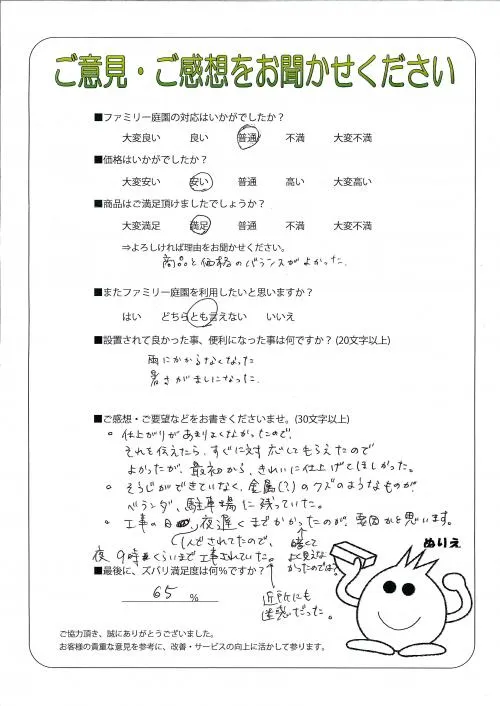 ご意見・ご感想をお聞かせください
■ファミリー庭園の対応はいかがでしたか？
大変良い　良い　普通　不満　大変不満
■価格はいかがでしたか？
大変安い　安い　普通　高い　大変高い
■商品はご満足頂けましたでしょうか？
大変満足　満足　普通　不満　大変不満
⇒よろしければ理由をお聞かせください。
商品と価格のバランスがよかった.
■またファミリー庭園を利用したいと思いますか？
はい　どちらとも言えない　いいえ
■設置されて良かった事、便利になった事は何ですか？(20文字以上)
雨にかからなくなった
暑さがましになった.
■ご感想・ご要望などをお書きくださいませ。(30文字以上)
。仕上がりがあまりよくなかったので、
それを伝えたら、すぐに対応してもらえたので
よかったが、最初から、きれいに仕上げてほしかった。
。そうじができていなく、金属(?)のクズのようなものが
ベランダ、駐車場に残っていた。
。工事の日、夜遅くまでかかったのが、原因かと思います。
んでされてたので、
夜9時くらいまで工事されていた。
暗くて
よく見えな
かったのでは?
近所にも
迷惑だった。
■最後に、ズバリ満足度は何%ですか？
65 %
ぬりえ
ご協力頂き、誠にありがとうございました。
お客様の貴重な意見を参考に、改善・サービスの向上に活かして参ります。